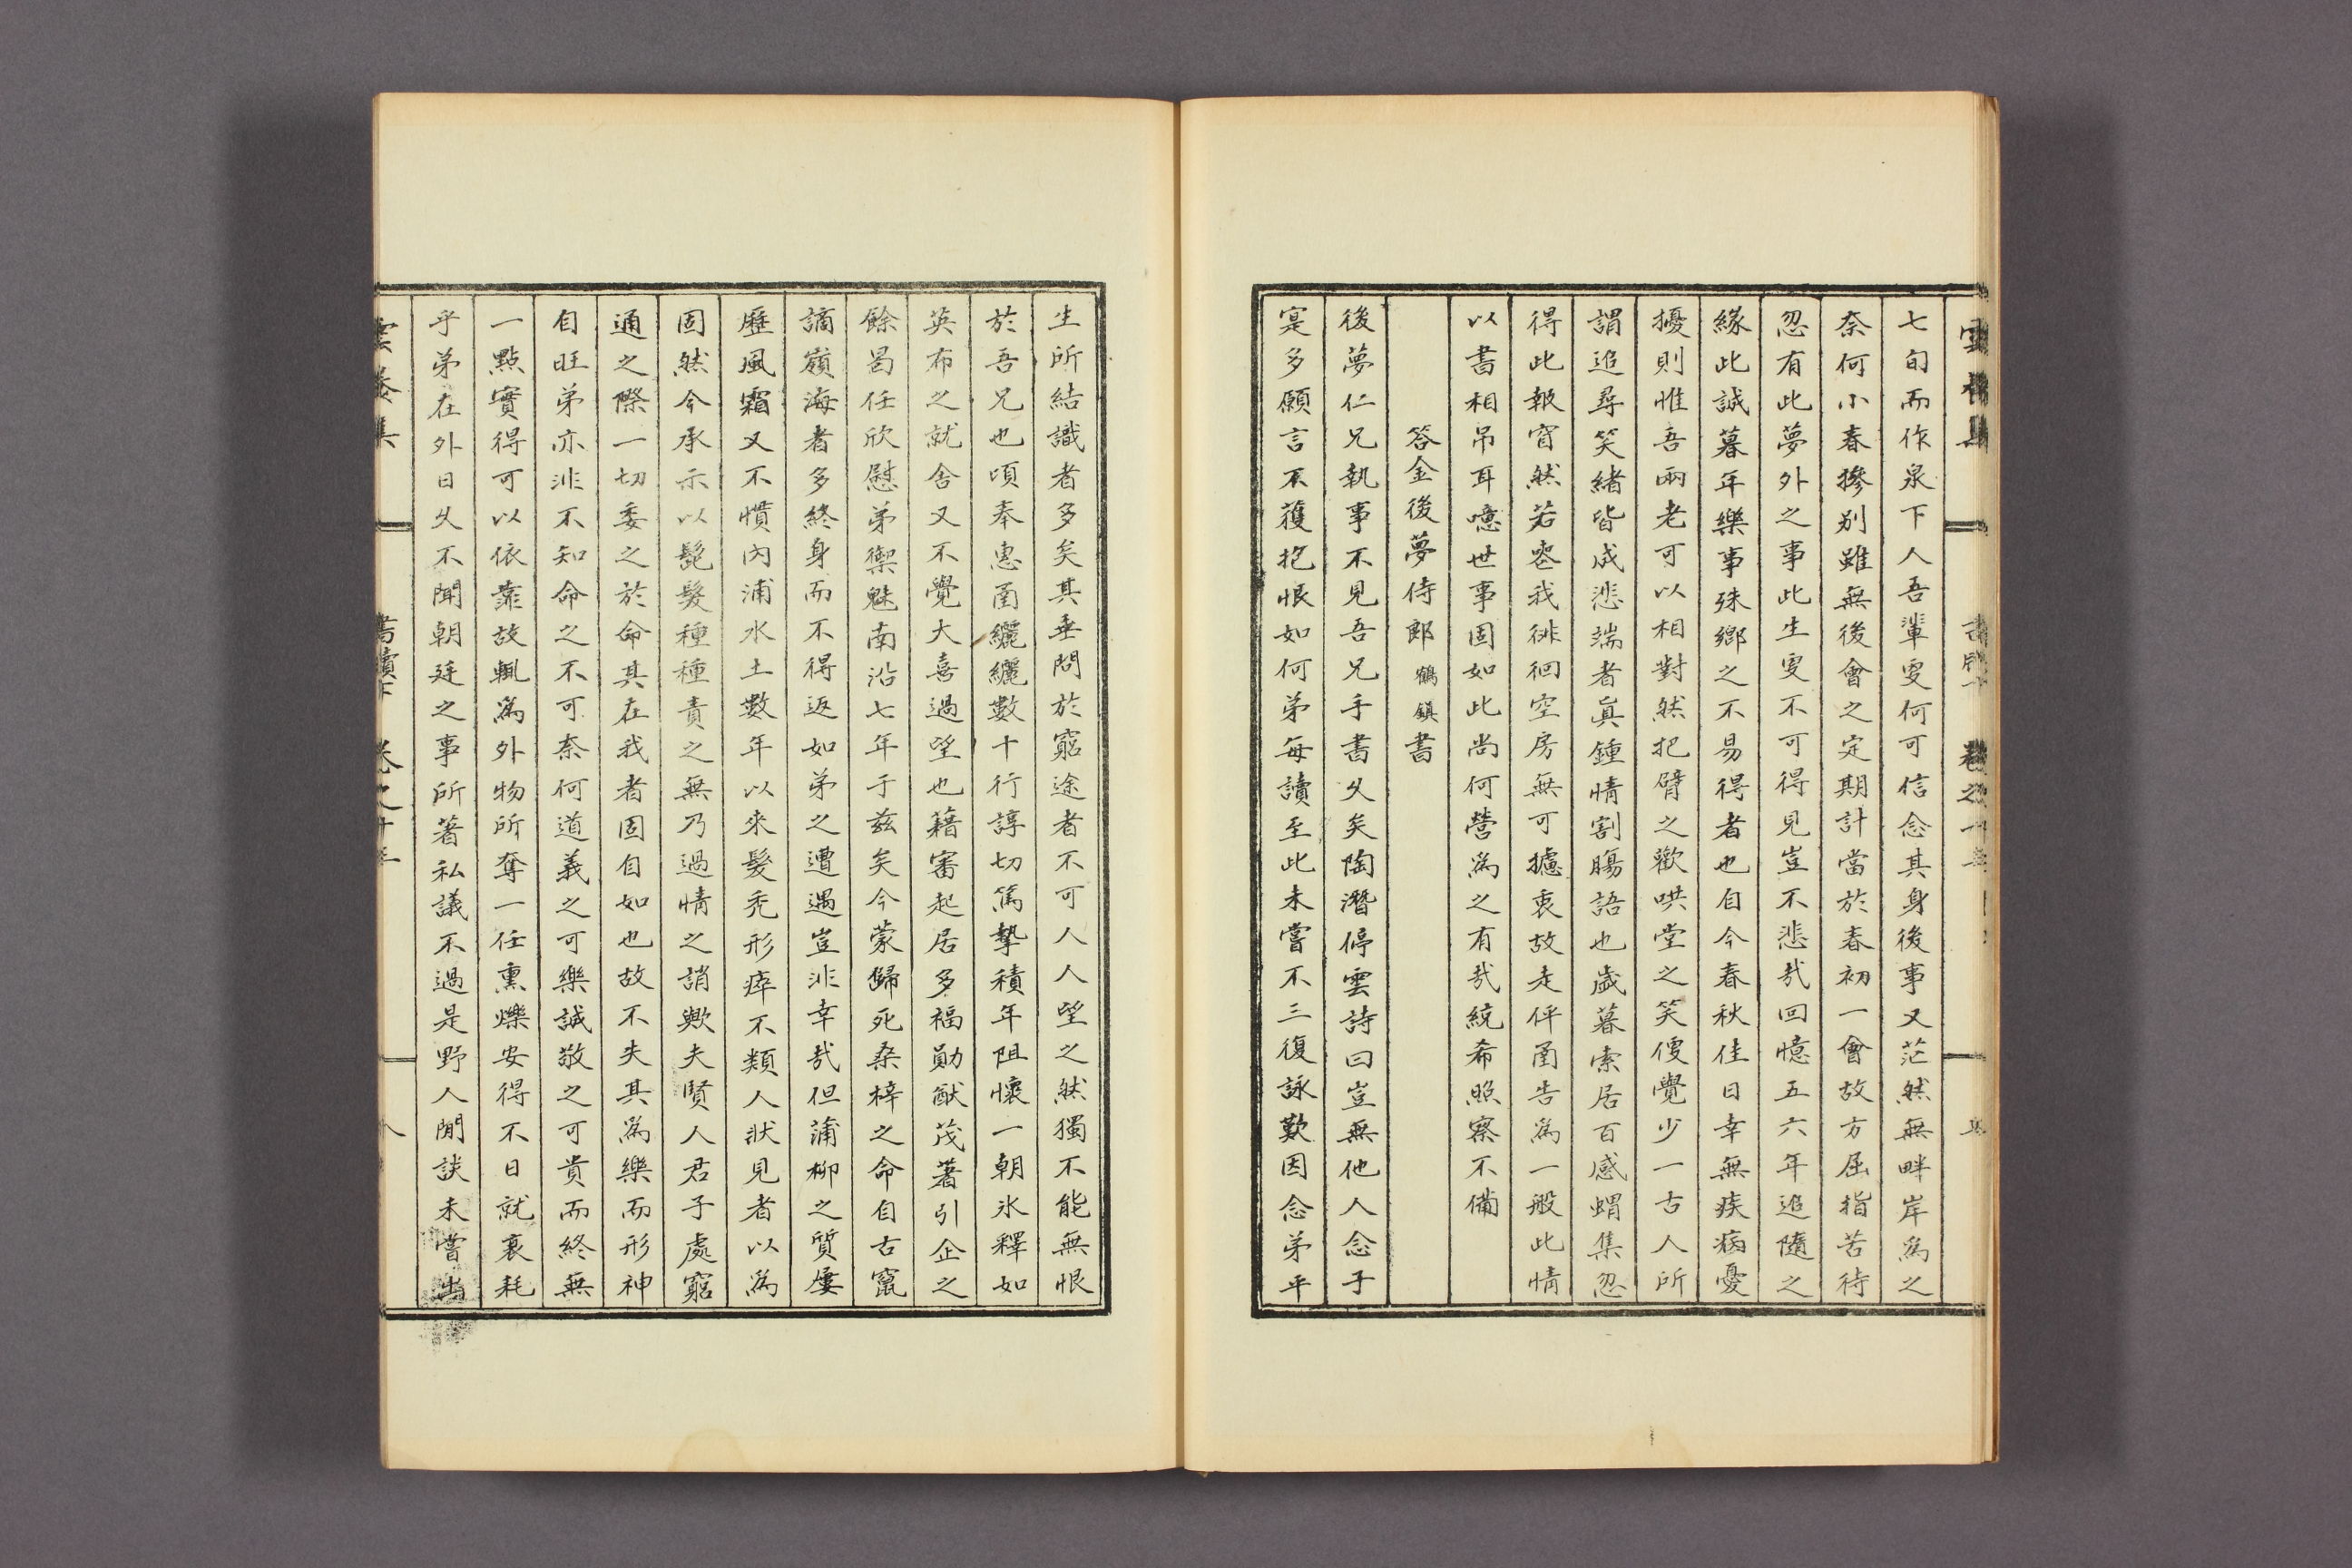 七旬而作泉下人吾輩叟何可信念其身後事又茫然無畔岸為之
奈何小春摻別雖無後會之定期計當於春初一會故方屈指苦待
忽有此夢外之事此生叟不可得見豈不悲哉回憶五六年追隨之
緣此誠暮年樂事殊鄉之不易得者也自今春秋佳日幸無疾病憂
擾則惟吾兩老可以相對然把臂之歡哄堂之笑便覺少一古人所
謂追尋笑緖皆成悲端者眞鍾情割膓語也歲暮索居百感蝟集忽
得此報窅然若喪我徘徊空房無可攄衷故走伻圅告為一般此情
以書相吊耳噫世事固如此尚何營為之有哉統希照察不備
答金後夢侍郎鶴鎭書
後夢仁兄執事不見吾兄手書久矣陶潛停雲詩曰豈無他人念子
寔多願言不獲抱恨如何弟每讀至此未嘗不三復詠歎因念弟平
生所結識者多矣其垂問於窮途者不可人人望之然獨不能無恨
於吾兄也頃奉惠圅纚纚數十行諄切篤摯積年阻懷一朝氷釋如
英布之就舍又不覺大喜過望也藉審起居多福勛猷茂著引企之
餘曷任欣慰弟禦魅南沿七年于玆矣今蒙歸死桑梓之命自古竄
謫嶺海者多終身而不得返如弟之遭遇豈非幸哉但蒲柳之質屢
歷風霜又不慣內浦水土數年以來髮禿形瘁不類人狀見者以為
固然今承示以髭髮種種責之無乃過情之誚歟夫賢人君子處窮
通之際一切委之於命其在我者固自如也故不失其為樂而形神
自旺弟亦非不知命之不可奈何道義之可樂誠敬之可貴而終無
一點實得可以依靠故輒為外物所奪一任熏爍安得不日就衰耗
乎弟在外日久不聞朝廷之事所著私議不過是野人閒談未嘗出
書牘下　卷之十